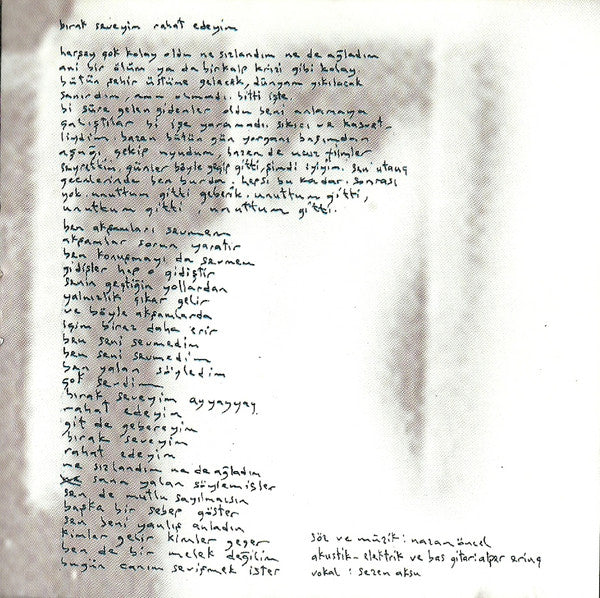 bırak seveyim rahat edeyim
herşey çok kolay oldu ne sızlandım ne de ağladım
ani bir ölüm ya da bir kalp krizi gibi kolay
bütün şehir üstüme gelecek, dünyam yıkılacak
sanırdım, ama olmadı bitti işte.
bi süre gelen gidenler oldu beni anlamaya
çalıştılar bi işe yaramadı sıkıcı ve kasvet-
liydim, bazen bütün gün yorganı başımdan
aşağı çekip uyudum, bazen de ucuz filmler
seyrettim, günler böyle geçip gitti, şimdi iyiyim. sen utanç
gecelerinde ben burda, hepsi bu kadar. sonrası
yok. unuttum gitti geberik. unuttum gitti,
unuttum gitti, unuttum gitti.
ben akşamları sevmem
akşamlar sorun yaratır
ben konuşmayı da sevmem
gidişler hep o gidiştir
senin geçtiğin yollardan
yalnızlık çıkar gelir
ve böyle akşamlarda
içim biraz daha erir
ben seni sevmedim
ben seni sevmedim
ben yalan söyledim
çok sevdim
bırak seveyim ayyayyay
rahat edeyim
git de gebereyim
bırak seveyim
rahat edeyim
ne sızlandım ne de ağladım
sana yalan söylemişler
sen de mutlu sayılmazsın
başka bir sebep göster
sen beni yanlış anladın
kimler gelir kimler geçer
ben de bir melek değilim
bugün canım sevişmek ister
söz ve müzik: nazan öncel
akustik-elektrik ve bas gitar: alper erinç
vokal: sezen aksu